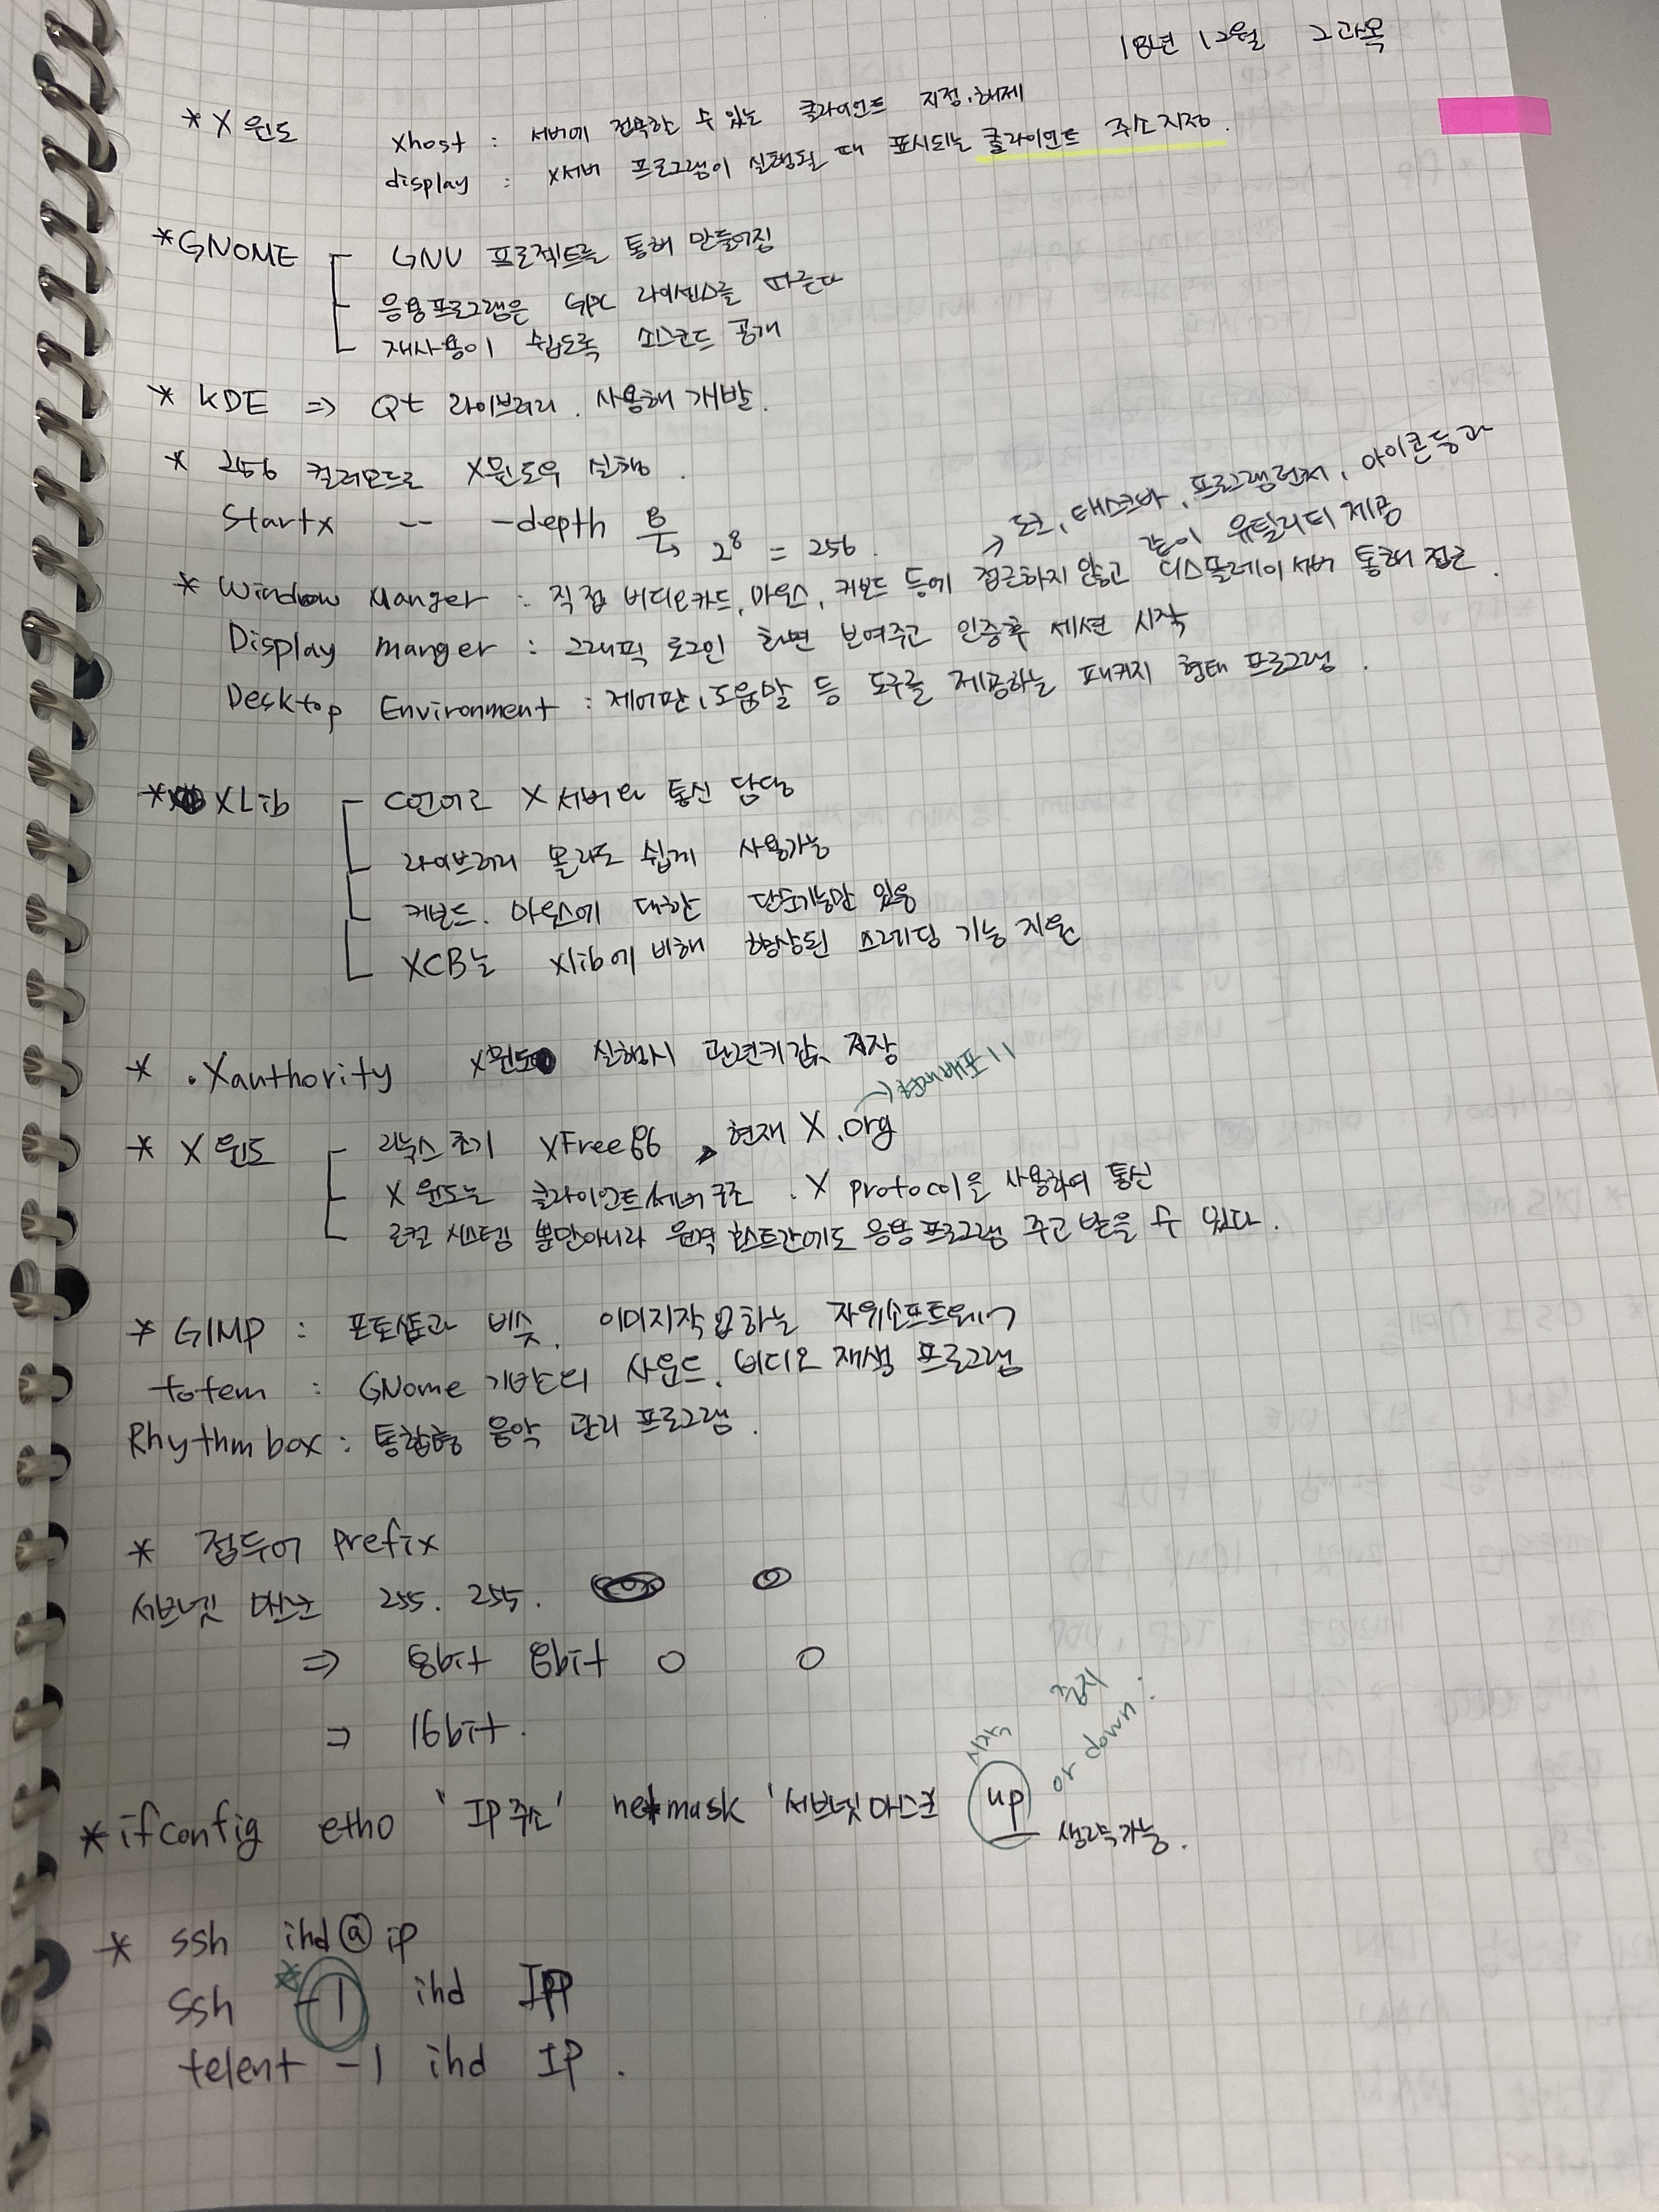 18년 12월 2과목
* X 윈도 xhost : 서버에 접속할 수 있는 클라이언트 지정.해제
display : X서버 프로그램이 실행될 때 표시되는 클라이언트 주소지정.
* GNOME GNU 프로젝트를 통해 만들어짐
응용프로그램은 GPL 라이센스를 따른다
재사용이 쉽도록 소스코드 공개
* KDE => Qt 라이브러리. 사용해 개발.
* 256 컬러모드로 X윈도우 실행.
Startx -- -depth 8 → 2⁸ = 256.
→ 도크, 태스크바, 프로그램런처, 아이콘 등과
같이 유틸리티 제공
* Window Manger : 직접 비디오카드, 마우스, 키보드 등에 접근하지 않고 디스플레이 서버 통해 접근.
Display manger : 그래픽 로그인 화면 보여주고 인증후 세션 시작
Desktop Environment : 제어판, 도움말 등 도구를 제공하는 패키지 형태 프로그램.
* XLib C언어로 X서버와 통신 담당
라이브러리 몰라도 쉽게 사용가능
키보드. 마우스에 대한 단순기능만 있음
XCB는 xlib에 비해 향상된 스레딩 기능 지원
* .Xauthority X윈도 실행시 관련키값 저장
→ 현재배포!!
* X 윈도 리눅스 초기 XFree86, 현재 X.org
X 윈도는 클라이언트/서버구조. X protocol을 사용하여 통신
로컬 시스템 뿐만아니라 원격 호스트간에도 응용프로그램 주고 받을 수 있다.
* GIMP : 포토샵과 비슷. 이미지작업하는 자유소프트웨어
totem : GNome 기반의 사운드, 비디오 재생 프로그램
Rhythmbox : 통합형 음악 관리 프로그램.
* 접두어 prefix
서브넷 마스크 255. 255. 0
=> 8bit 8bit 0 0
=> 16bit.
시작 중지
or down.
* ifconfig eth0 'IP주소' netmask '서브넷마스크 up 생략가능.
* ssh ihd@ip
ssh * -l ihd IP
telent -l ihd IP.